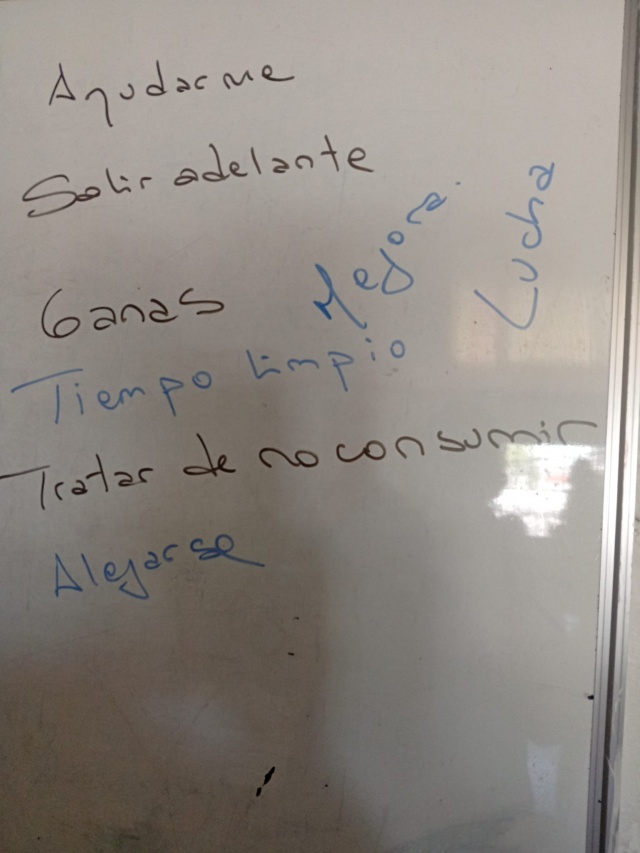 Ayudarme
Salir adelante
Ganas
Mejora.
Lucha
Tiempo limpio
Tratar de no consumir
Alejarse